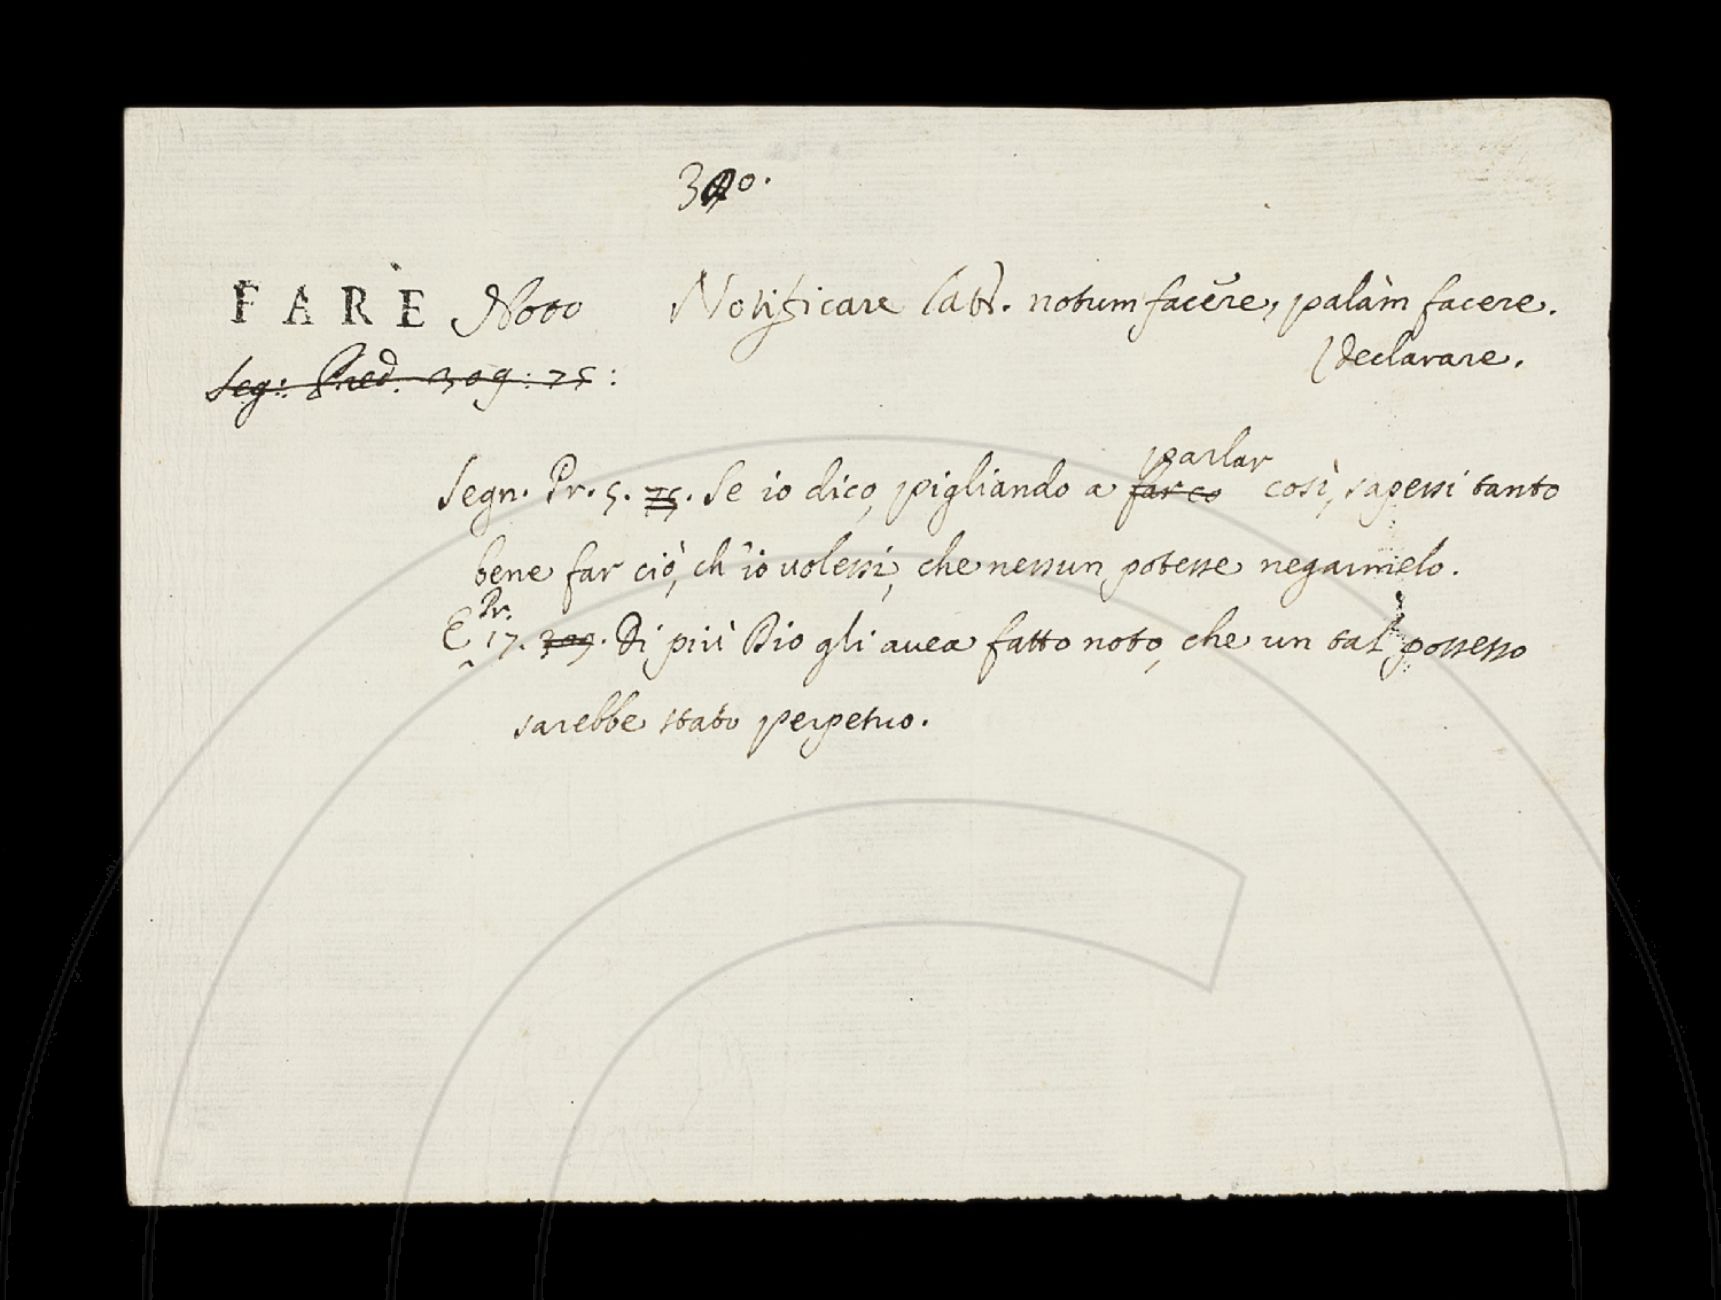 340.
FARE Noto Notificare latt. notum facĕre, palàm facere.
declarare.
Seg: Pred. 309: 75:
parlar
Segn. Pr. 5. 75. Se io dico, pigliando a far co così, sapessi tanto
bene far ciò, ch'io volessi, che nessun potesse negarmelo.
Pr.
E 17. 309. Di più Dio gli avea fatto noto, che un tal possesso
sarebbe stato perpetuo.